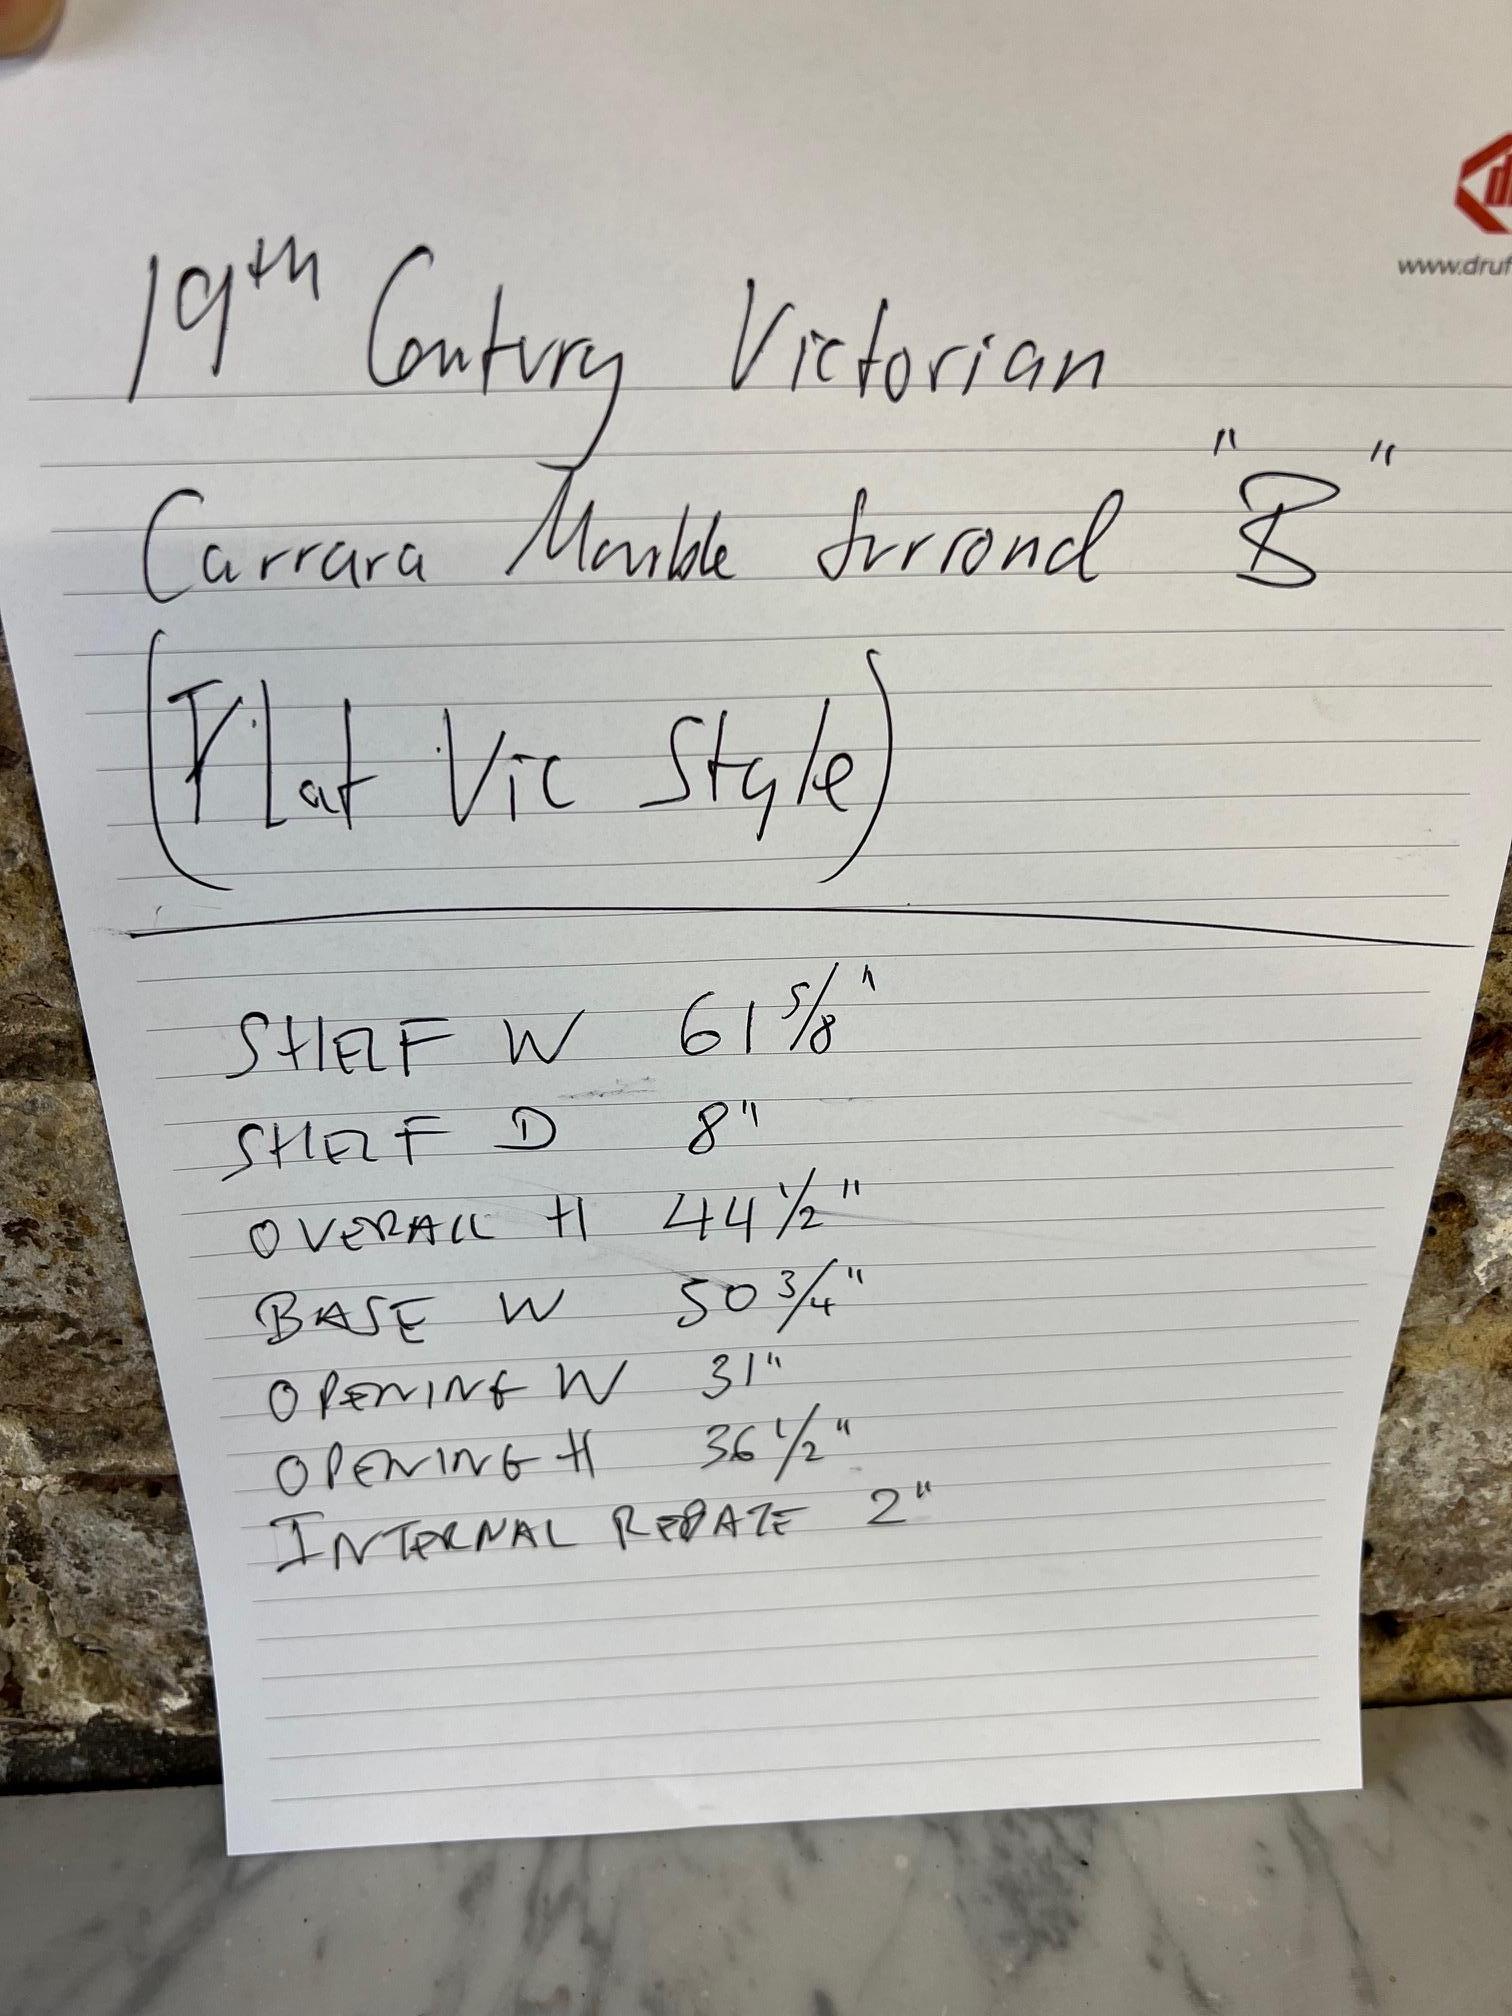 19th Century Victorian
Carrara Marble Surrond "B"
(Flat Vic Style)
SHELF W 61 5/8"
SHELF D 8"
OVERALL H 44 1/2"
BASE W 50 3/4"
OPENING W 31"
OPENING H 36 1/2"
INTERNAL REBATE 2"
www.druf